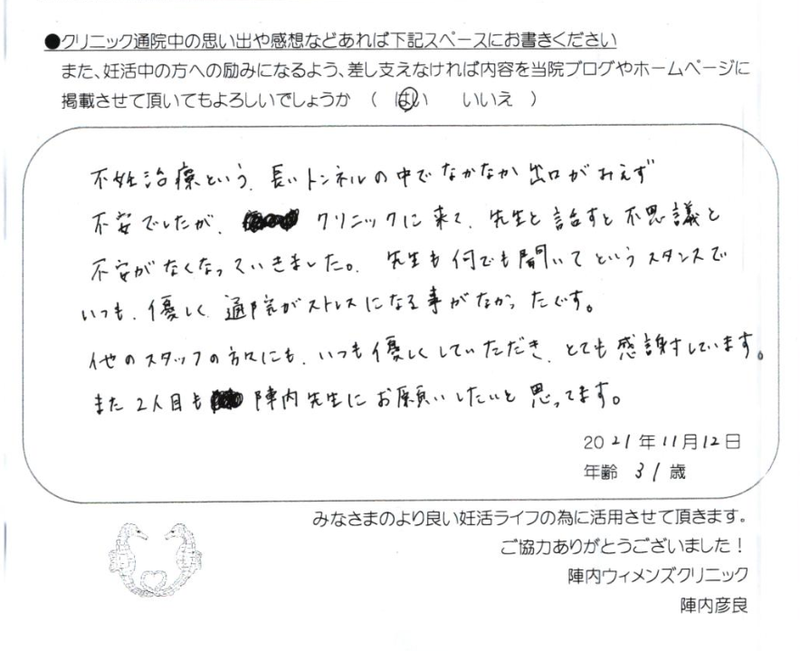 ●クリニック通院中の思い出や感想などあれば下記スペースにお書きください
また、妊活中の方への励みになるよう、差し支えなければ内容を当院ブログやホームページに
掲載させて頂いてもよろしいでしょうか （ はい いいえ ）
不妊治療という、長いトンネルの中でなかなか出口がみえず
不安でしたが、クリニックに来て、先生と話すと不思議と
不安がなくなっていきました。先生も何でも聞いてというスタンスで
いつも、優しく、通院がストレスになる事がなかったです。
他のスタッフの方々にも、いつも優しくしていただき、とても感謝しています。
また2人目も陣内先生にお願いしたいと思ってます。
2021年11月12日
年齢 31歳
みなさまのより良い妊活ライフの為に活用させて頂きます。
ご協力ありがとうございました！
陣内ウィメンズクリニック
陣内彦良